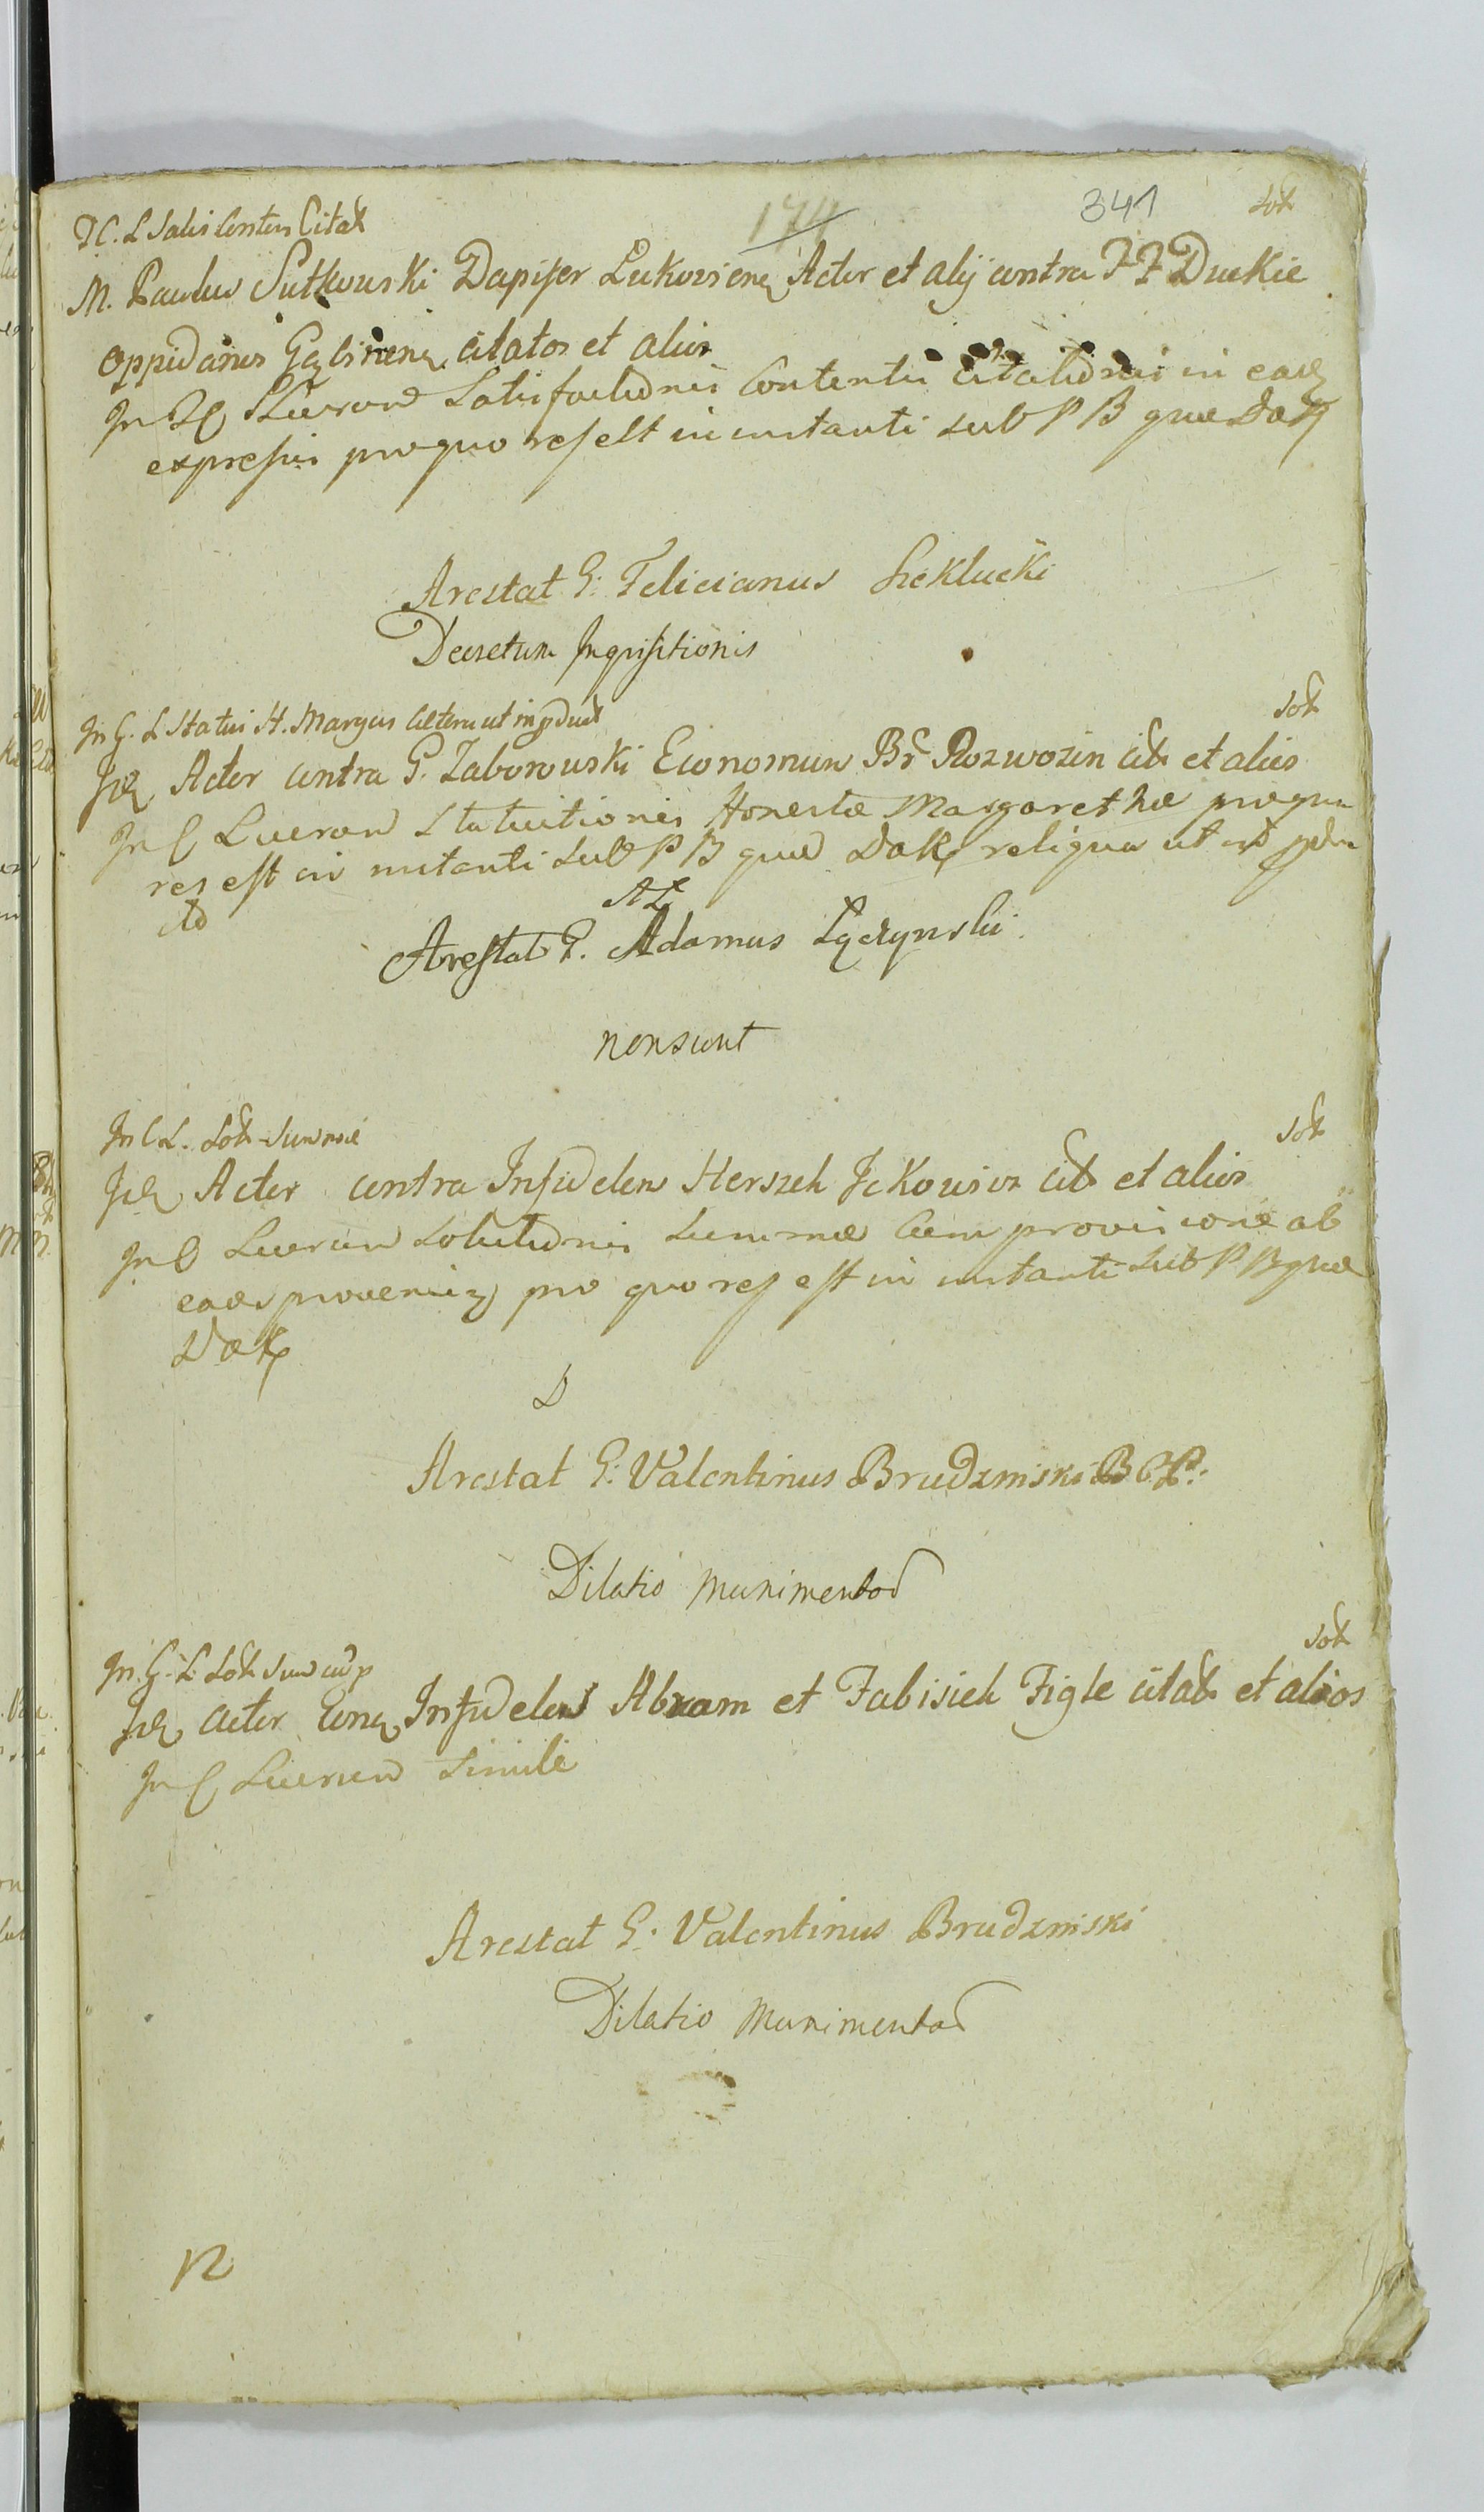 174
341
Sot
JC. L Satis Conten Citat
M. Paulus Sutkowski Dapifer Lukoviens Actor et alij contra F F Duckie
oppidanos Gąbinens citatos et alios
In Lucrum Satisfactionis Contentis Citationis in eade
expressis pro quo res est in instanti sub P B quae
Arestat G: Felicianus Szeklucki
Decretum Inquisitionis
Sot
In G. L Statui H. Margar altera ut in
Actor contra G. Zaborowski Economum Br Rozwozin cit et alios
In C Lucrum Statuitionis Honestae Margarethae pro quo
res est in instanti sub P B quae reliqua ut
AL
Arestat G. Adamus Łączynski
non sunt
Sot
In C L. Sot Summae
Actor contra Infidelem Herszek Jckowicz cit et alios
In C Lucrum Solutionis Summae Cum provisione ab
eade provenien pro quo res est in instanti sub P B quae
D
Arestat G: Valentinus Brudzinski B C P:
Dilatio Munimentor
Sot
In G. L. Sot Sum
Actor Con Infidelem Abram et Fabisieh Figle citat et alios
In C Lucrum Simile
Arestat G: Valentinus Brudzinski
Dilatio Munimentor